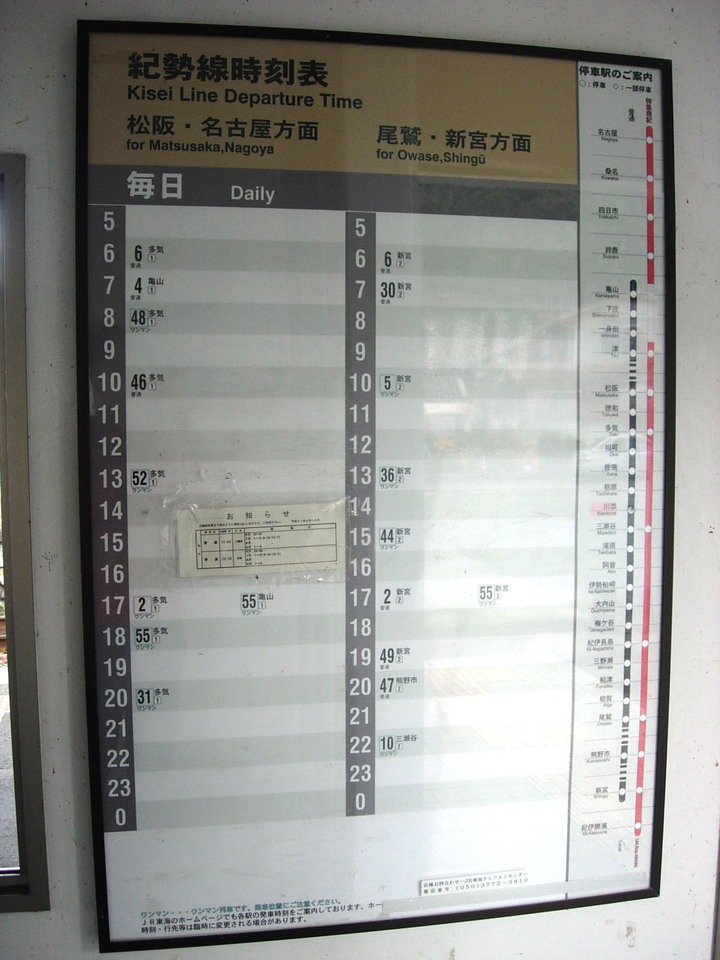 紀勢線時刻表
Kisei Line Departure Time
松阪・名古屋方面
for Matsusaka,Nagoya
尾鷲・新宮方面
for Owase,Shingū
毎日 Daily
5
6 6 多気 1 普通
7 4 亀山 1 普通
8 48 多気 1 ワンマン
9
10 46 多気 1 普通
11
12
13 52 多気 1 ワンマン
14
15
16
17 2 多気 1 ワンマン 55 亀山 1 ワンマン
18 55 多気 1 ワンマン
19
20 31 多気 1 ワンマン
21
22
23
0
お知らせ
5
6 6 新宮 2 普通
7 30 新宮 2 普通
8
9
10 5 新宮 2 ワンマン
11
12
13 36 新宮 2 ワンマン
14
15 44 新宮 2 ワンマン
16
17 2 新宮 2 普通 55 新宮 2 ワンマン
18
19 49 新宮 2 普通
20 47 熊野市 2 普通
21
22 10 三瀬谷 2 ワンマン
23
0
停車駅のご案内
○：停車 ◇：一部停車
普通
特急南紀
名古屋
Nagoya
桑名
Kuwana
四日市
Yokkaichi
鈴鹿
Suzuka
亀山
Kameyama
下庄
一身田
津
Tsu
松阪
Matsusaka
徳和
Tokuwa
多気
Taki
相可
Ōka
佐奈
Sana
栃原
Tochihara
川添
Kawazoe
三瀬谷
Misedani
滝原
Takihara
阿曽
Aso
伊勢柏崎
Ise-Kashiwazaki
大内山
Ōuchiyama
梅ケ谷
Umegadani
紀伊長島
Kii-Nagashima
三野瀬
Minose
船津
Funatsu
相賀
Aiga
尾鷲
Owase
熊野市
Kumanoshi
新宮
Shingū
紀伊勝浦
Kii-Katsuura
お問い合わせ…JR東海テレフォンセンター
電話番号 (050)3772-3910
ワンマン・・・ワンマン列車です。乗車位置にご注意ください。
ＪＲ東海のホームページでも各駅の発車時刻をご案内しております。ホー
時刻・行先等は臨時に変更される場合があります。